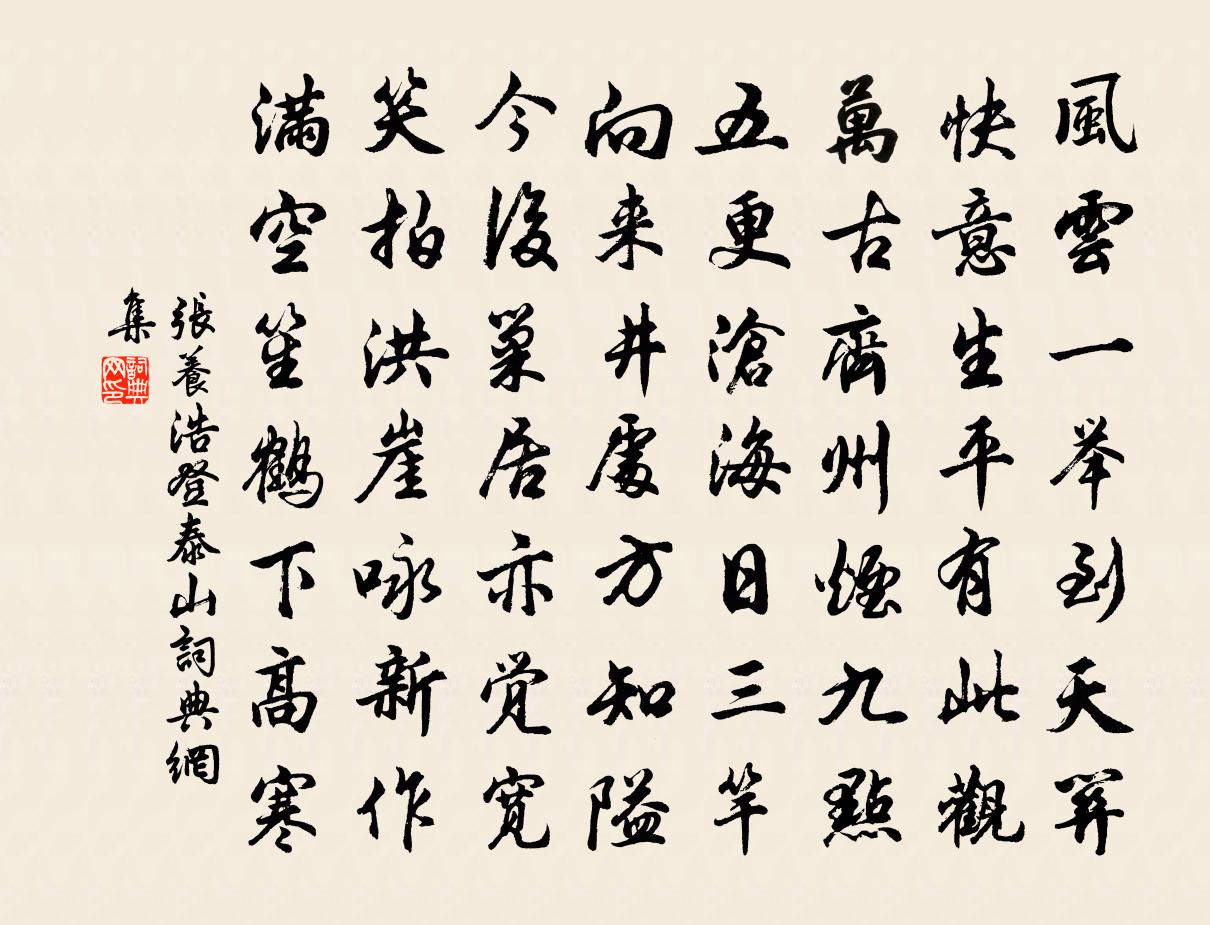 風雲一举到天関
快意生平有此觀
萬古齊州煙九點
五更滄海日三竿
向来井處方知隘
今後巢居亦覚寬
笑拍洪崖咏新作
満空笙鶴下高寒
張養浩登泰山詞典網
集
詞典网印